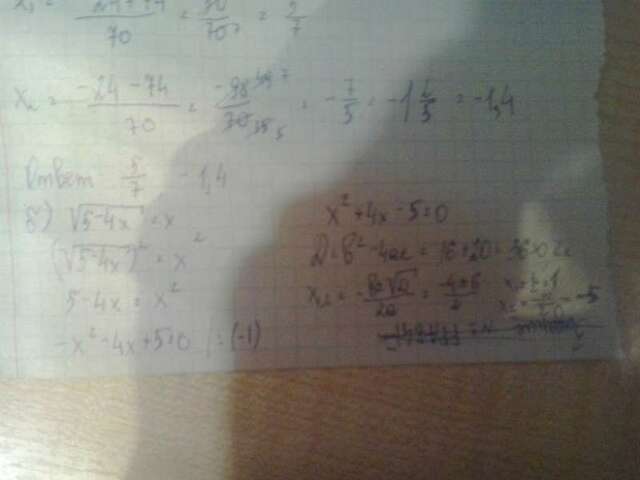 70 = 70 = 7
x₂ = -24-74/70 = -98/70 = -7/5 = -1 2/5 = -1,4
Ответ 5/7 -1,4
б) √5-4x = x
(√5-4x)² = x²
5-4x = x²
-x²-4x+5=0 |:(-1)
x²+4x-5=0
D=b²-4ac = 16+20=36>0 2к
x₁,₂ = -b±√D/2a = -4±6/2
-5